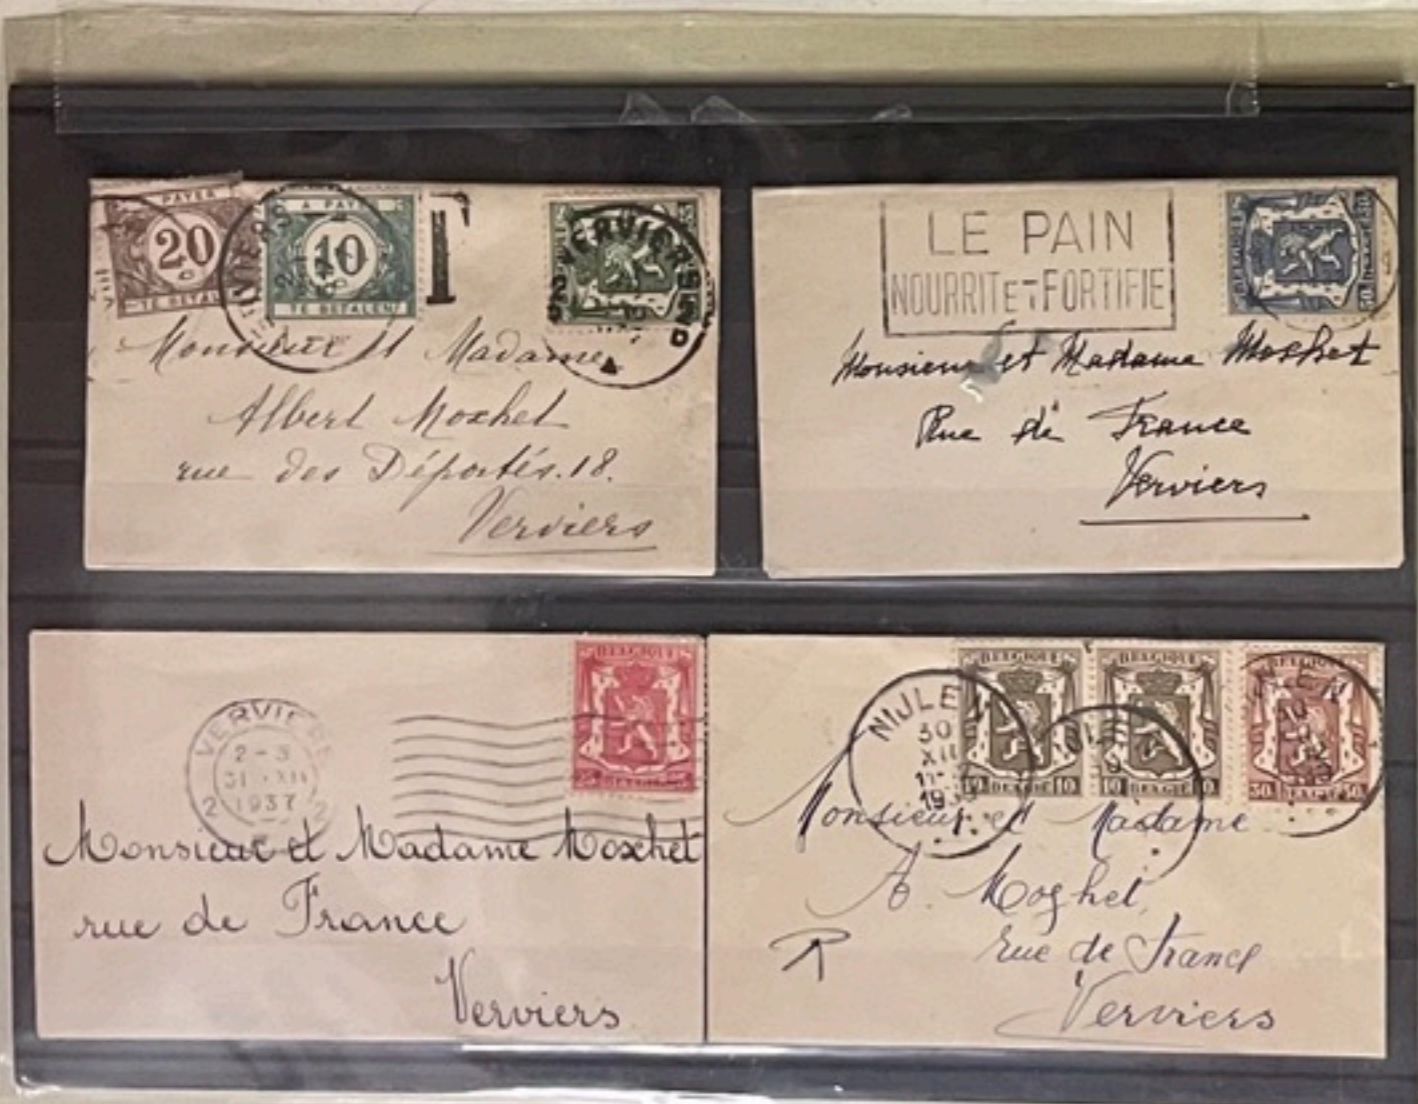 A PAYER
20
TE BETAL
A PAYER
10
TE BETALEN
T
VERVIERS
Monsieur et Madame
Albert Moxhet
rue des Déportés. 18.
Verviers
LE PAIN
NOURRIT ET FORTIFIE
Monsieur et Madame Moxhet
Rue de France
Verviers
BELGIQUE
VERVIER
2-3
31 XII
1937
2 2
Monsieur et Madame Moxhet
rue de France
Verviers
BELGIQUE
BELGIQUE
BELGIQUE
NIJLEN
30
XII
10 BELGIE 10
10 BELGIE 10
50 BELGIE 50
Monsieur et Madame
A. Moxhet
rue de France
Verviers